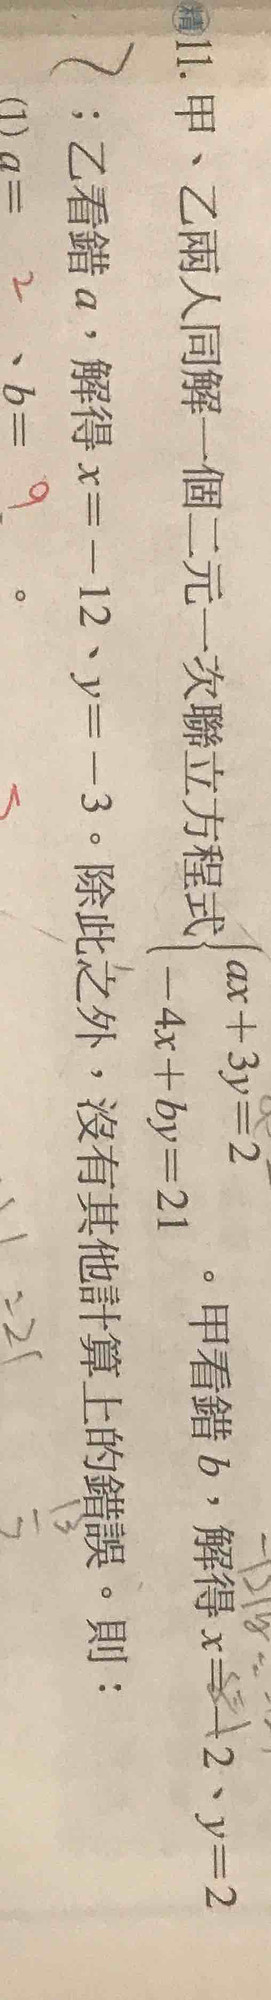 精 11. 甲、乙兩人同解一個二元一次聯立方程式{ax+3y=2
-4x+by=21 。甲看錯 b,解得 x=-2、y=2
;乙看錯 a,解得 x=-12、y=-3。除此之外,沒有其他計算上的錯誤。則:
(1) a= 2 、b= 9 。
=21